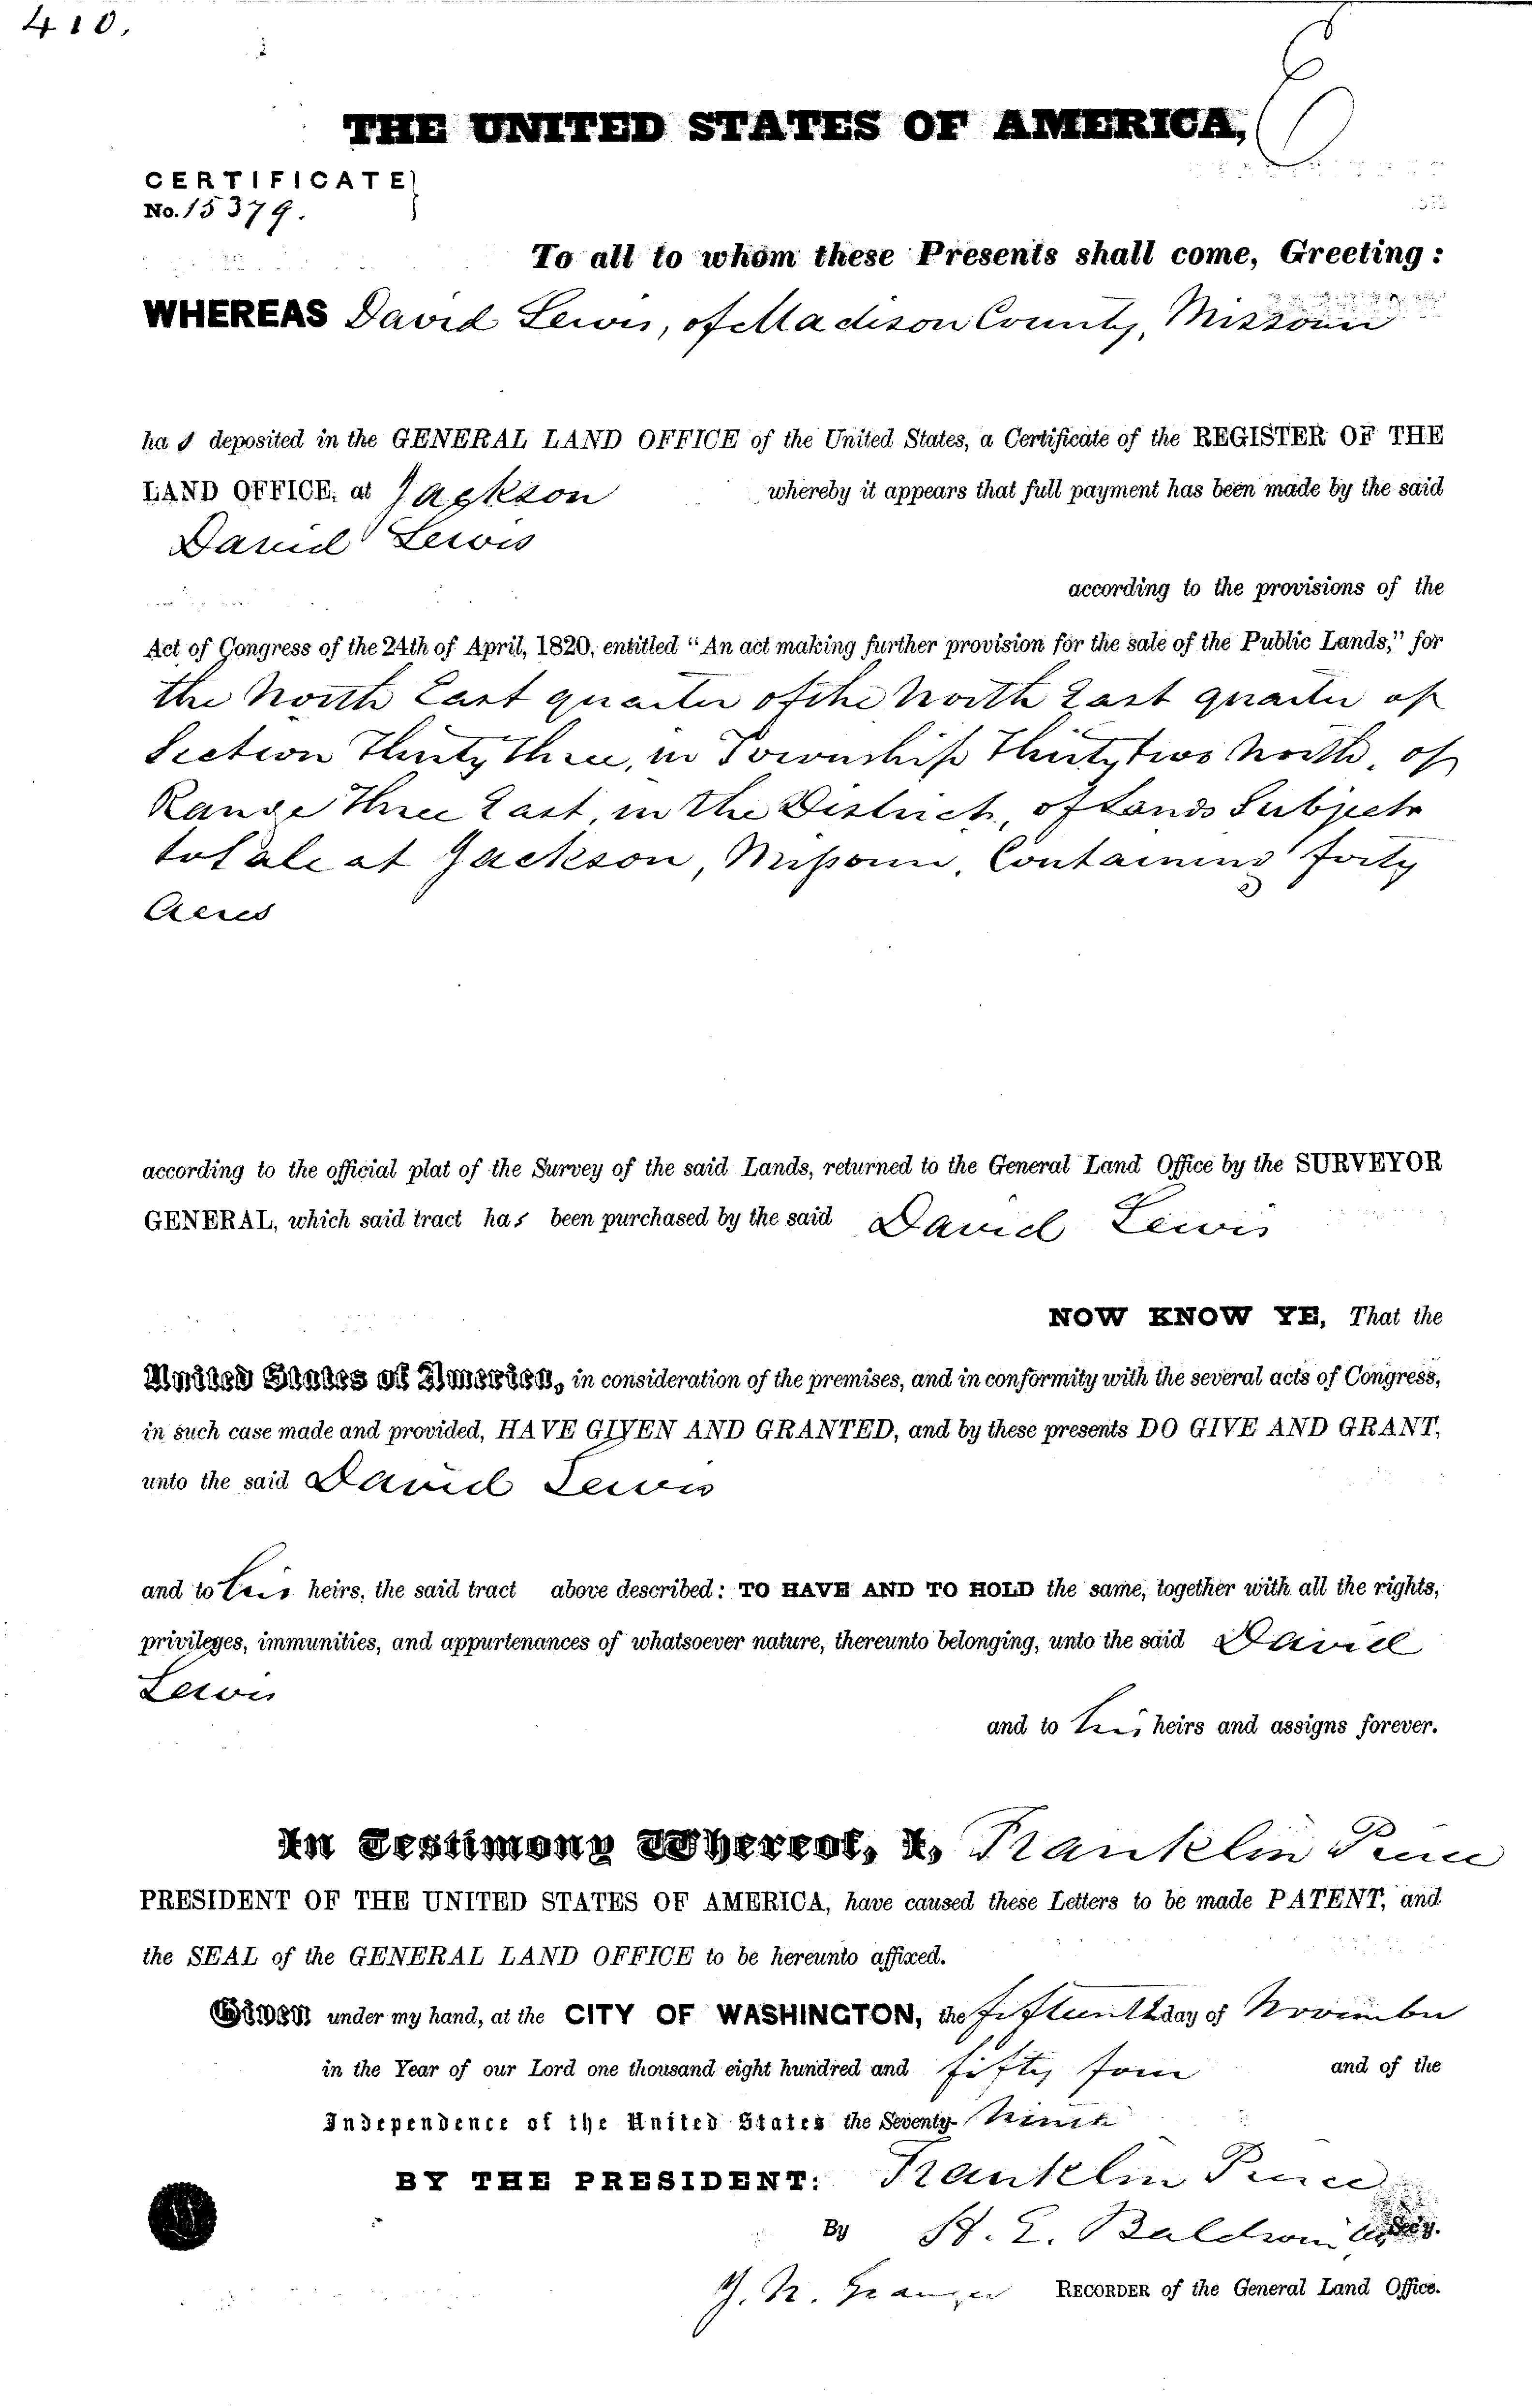 410.
THE UNITED STATES OF AMERICA,
CERTIFICATE
No. 15379.
To all to whom these Presents shall come, Greeting:
WHEREAS David Lewis, of Madison County, Missouri
has deposited in the GENERAL LAND OFFICE of the United States, a Certificate of the REGISTER OF THE
LAND OFFICE, at Jackson whereby it appears that full payment has been made by the said
David Lewis
according to the provisions of the
Act of Congress of the 24th of April, 1820, entitled "An act making further provision for the sale of the Public Lands," for
the North East quarter of the North East quarter of
Section Thirty three, in Township Thirty two North, of
Range Three East, in the District, of Lands Subject
to Sale at Jackson, Missouri, Containing forty
Acres
according to the official plat of the Survey of the said Lands, returned to the General Land Office by the SURVEYOR
GENERAL, which said tract has been purchased by the said David Lewis
NOW KNOW YE, That the
United States of America, in consideration of the premises, and in conformity with the several acts of Congress,
in such case made and provided, HAVE GIVEN AND GRANTED, and by these presents DO GIVE AND GRANT,
unto the said David Lewis
and to his heirs, the said tract above described: TO HAVE AND TO HOLD the same, together with all the rights,
privileges, immunities, and appurtenances of whatsoever nature, thereunto belonging, unto the said David
Lewis
and to his heirs and assigns forever.
In Testimony Whereof, I, Franklin Pierce
PRESIDENT OF THE UNITED STATES OF AMERICA, have caused these Letters to be made PATENT, and
the SEAL of the GENERAL LAND OFFICE to be hereunto affixed.
Given under my hand, at the CITY OF WASHINGTON, the fifteenth day of November
in the Year of our Lord one thousand eight hundred and fifty four and of the
Independence of the United States the Seventy-Ninth
BY THE PRESIDENT: Franklin Pierce
By H. E. Baldwin Sec'y.
J. N. Granger RECORDER of the General Land Office.